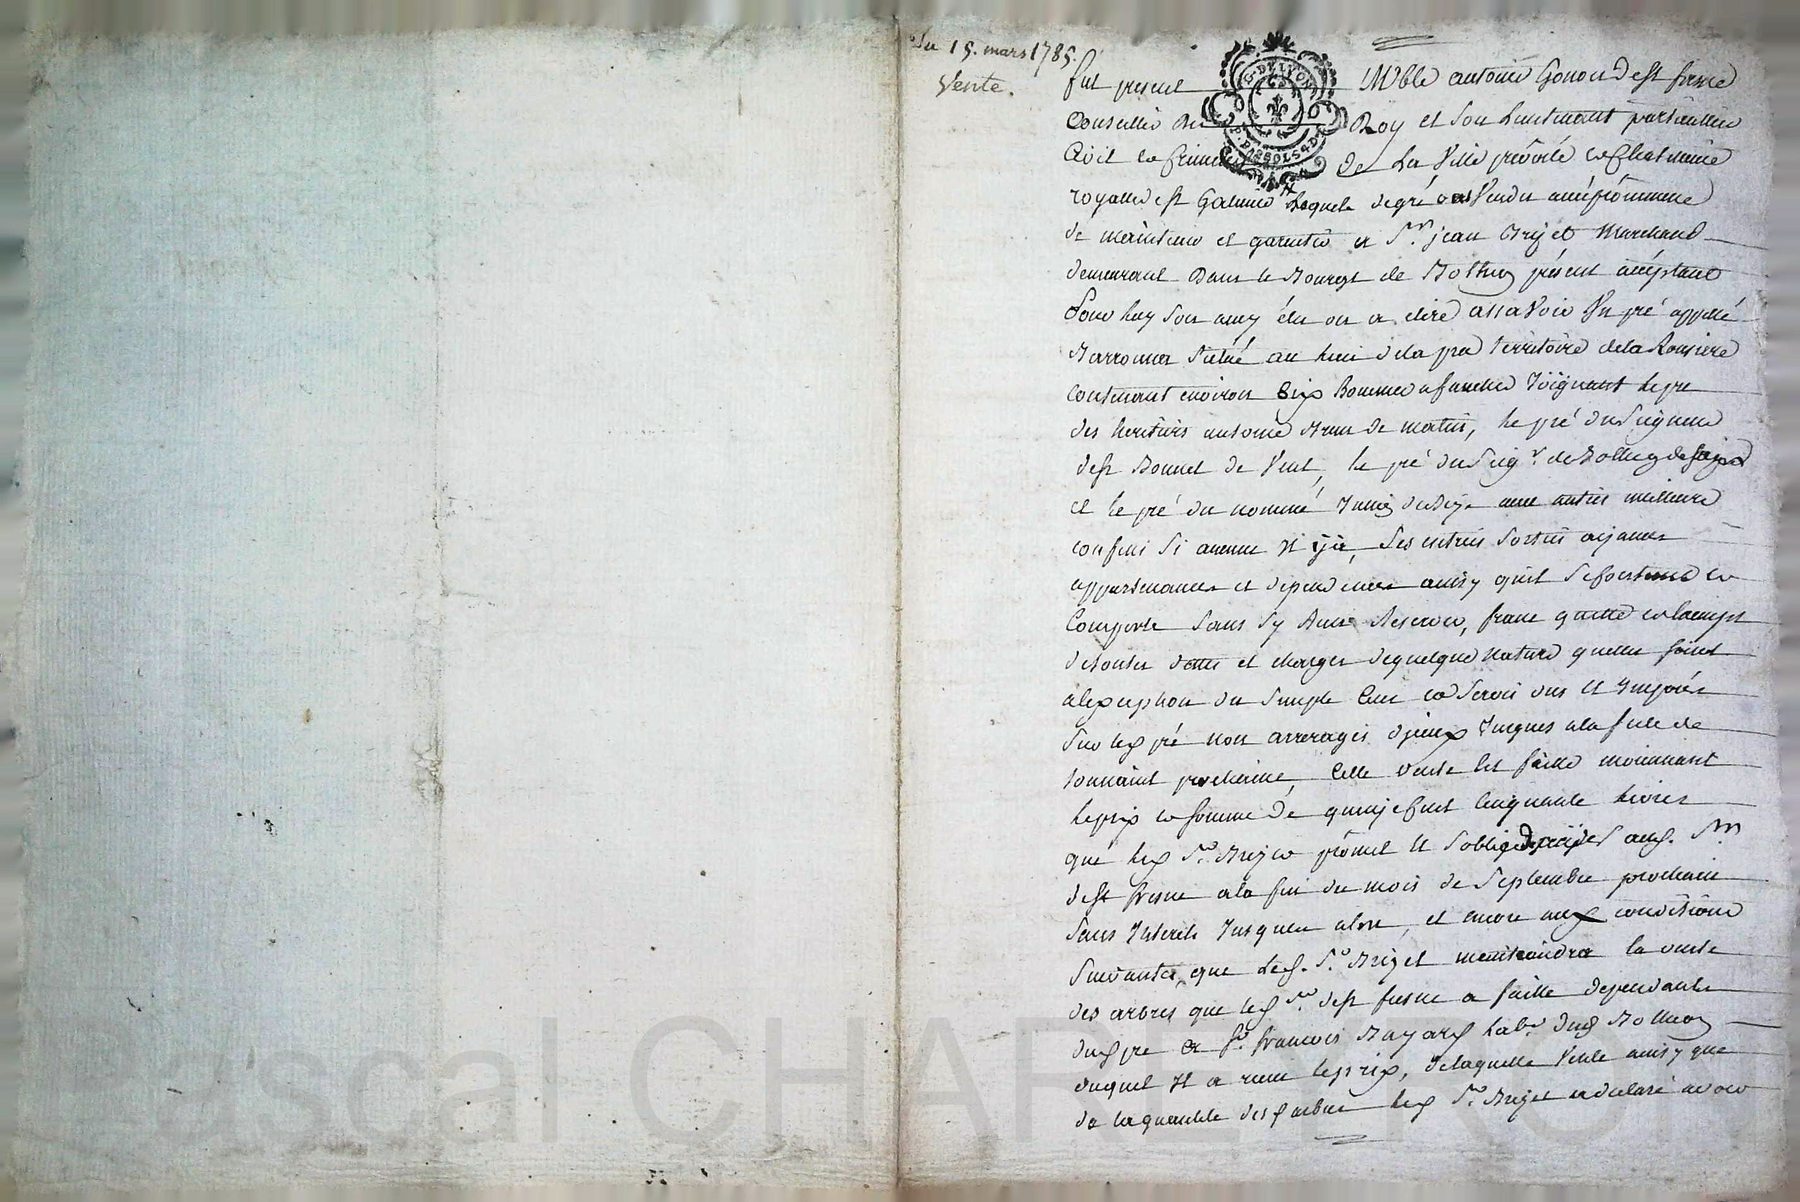 du 15. mars 1785.
Vente.
G. DE LYON
fut present Mble antoine Gonon dest fresne
Conseiller du Roy et son Lieutenant particullier
Civil de la Ville prévoté et Chatelnie
royalle dest Galmier Lequel de gré a Vendu avec promesse
de maintenir et garentir a Sr. jean Brijet Marchand
demeurant dans le Bourg de Botheon présent acceptant
Pour luy son amy élu ou a elire assavoir Un pré appellé
situé au lieu de la territoire de la Ronziere
contenant environ Six hommes a faucher Joignant le pré
des heritiers antoine de matin, le pré du Seigneur
dest Bonnet de Vent, le pré du Seigr. de Botheon de
et le pré du nommé avec autres meilleurs
confins si aucuns il y a, Ses entrées sorties aijances
appartenances et dependences ainsy quil se et
Comporte sans sy Aucune Reserver, franc quitte et
de toutes dettes et charges de quelque nature quelles soient
alexception du simple Cens et Servis dus et Imposés
Sur led pré non arreragés d'jceux Jusques a la fete de
toussaint prochaine, Cette vente est faitte moiennant
le prix et somme de quinze Cent Cinquante Livres
que led Sr. Brijet promet et s'oblige aud. Sr.
dest fresne a la fin du mois de Septembre prochain
sans Interets Jusques alors, et encore aux conditions
Suivantes, que led. Sr. Brijet maintiendra la vente
des arbres que led Sr. dest fresne a faitte dependants
dud pré a Sr. francois Bayard habt. dud Botheon
duquel Il a recu le prix, de laquelle Vente ainsy que
de la quantité des arbres led Sr. Brijet a declaré avoir
Pascal CHAPERON